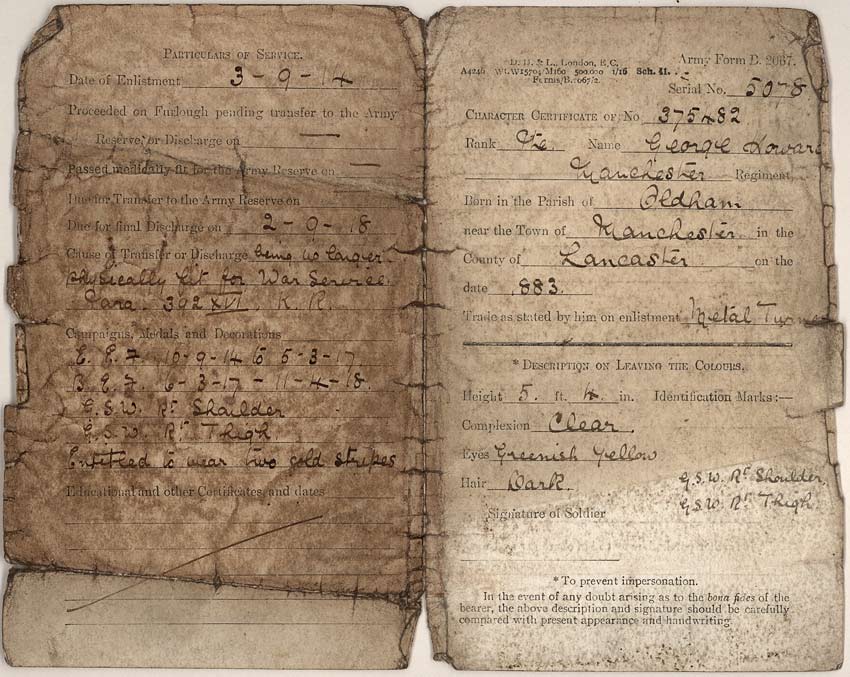 PARTICULARS OF SERVICE.
Date of Enlistment 3-9-14
Proceeded on Furlough pending transfer to the Army
Reserve, or Discharge on —
Passed medically fit for the Army Reserve on —
Due for Transfer to the Army Reserve on
Due for final Discharge on 2-9-18
Cause of Transfer or Discharge being no longer
physically fit for War Service.
Para. 392 XVI. K. R.
Campaigns, Medals and Decorations
E. E. F. 10-9-14 to 5-3-17
B. E. F. 6-3-17 - 11-4-18.
G.S.W. Rt Shoulder
G.S.W. Rt Thigh
Entitled to wear two gold stripes
Educational and other Certificates, and dates
D. D. & L., London, E.C.
A4246 Wt.W15704/M160 500,000 1/16 Sch. 41.
Forms/B.2067/2.
Army Form B. 2067.
Serial No. 5078
CHARACTER CERTIFICATE OF No 375482
Rank Pte. Name George Howard
Manchester Regiment.
Born in the Parish of Oldham
near the Town of Manchester in the
County of Lancaster on the
date 1883.
Trade as stated by him on enlistment Metal Turner
* DESCRIPTION ON LEAVING THE COLOURS.
Height 5. ft. 4. in. Identification Marks:—
Complexion Clear.
Eyes Greenish Yellow
Hair Dark. G.S.W. Rt Shoulder,
G.S.W. Rt Thigh.
Signature of Soldier
* To prevent impersonation.
In the event of any doubt arising as to the bona fides of the
bearer, the above description and signature should be carefully
compared with present appearance and handwriting.